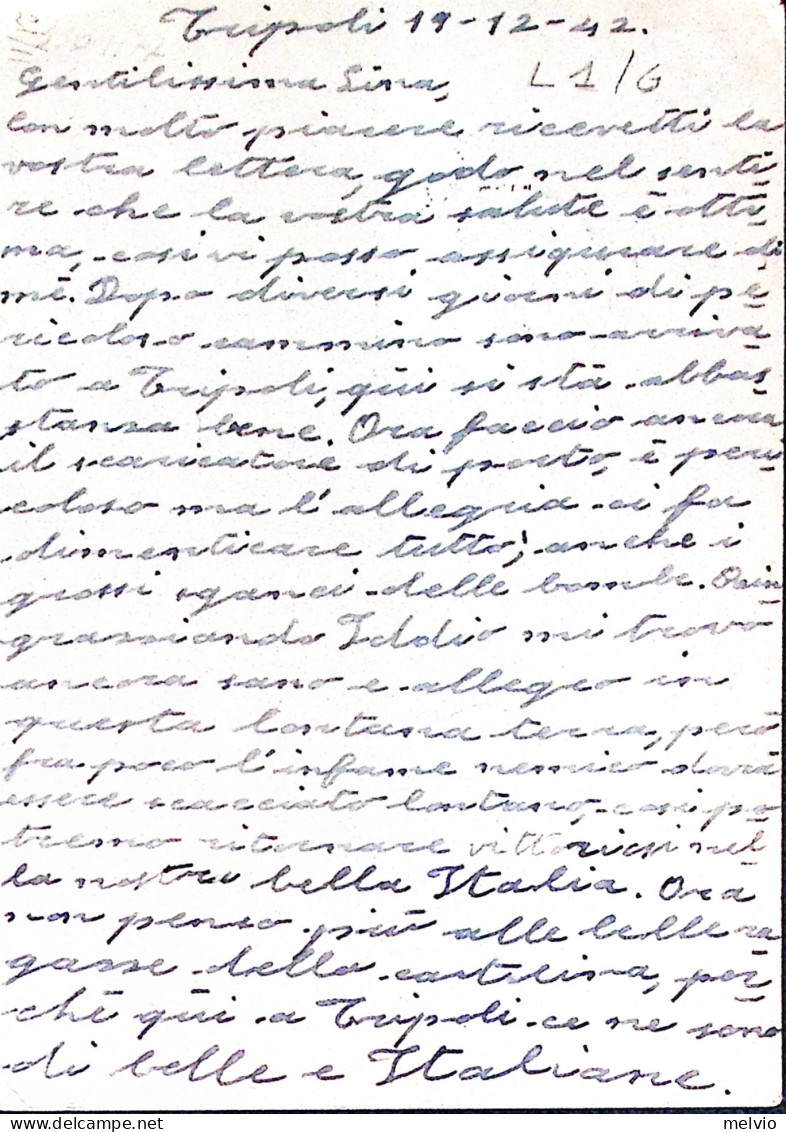 Tripoli 19-12-42.
Gentilissima Lina, L 1/6
Con molto piacere ricevetti la
vostra lettera, godo nel senti-
re che la vostra salute è otti-
ma, cosi vi posso assigurare di
mè. Dopo diversi giorni di pe-
ricoloso cammino sono arriva-
to a Tripoli, qùi si stà abbas-
stanza bene. Ora faccio ancora
il scaricatore di porto, è peri-
coloso ma l'allegria ci fa
dimenticare tutto; anche i
grossi sganci delle bombe. Rin-
grassiando Iddio mi trovo
ancora sano e allegro in
questa lontana terra, però
fra poco l'infame nemico dovrà
essere scacciato lontano, cosi po-
tremo ritornare vittoriosi nel-
la nostra bella Italia. Ora
non penso più alle belle ra-
gasse della cartolina, per-
chè qùi a Tripoli ce ne sono
di belle e Italiane.
melvio